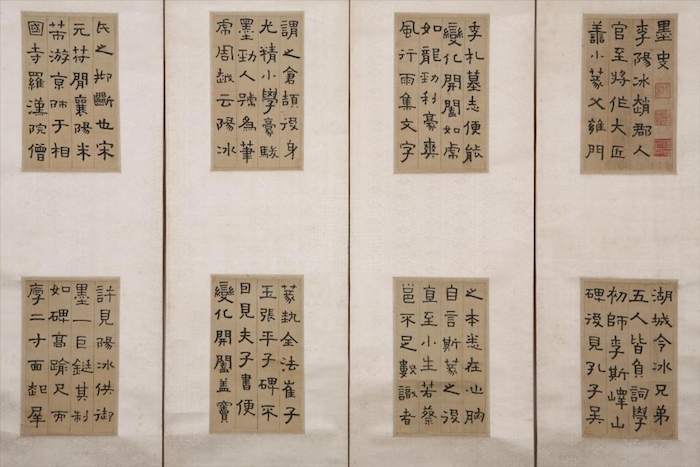 墨史
李陽冰趙郡人
官至將作大匠
善小篆父雍門
湖城令冰兄弟
五人皆負詞學
初師李斯嶧山
碑後見孔子吳
季札墓志便能
變化開闔如虎
如龍勁利豪爽
風行雨集文字
之本悉在心胸
自言斯篆之後
直至小生若蔡
邕不足數識者
謂之倉頡後身
尤精小學豪駿
墨勁人號為筆
虎周越云陽冰
篆埶全法崔子
玉張平子碑不
回見夫子書便
變化開闔蓋竇
氏之斷也宋
元苻間襄陽米
芾游京師于相
國寺羅漢院僧
許見陽冰供御
墨一巨鋌其制
如碑高踰尺而
厚二寸面起犀